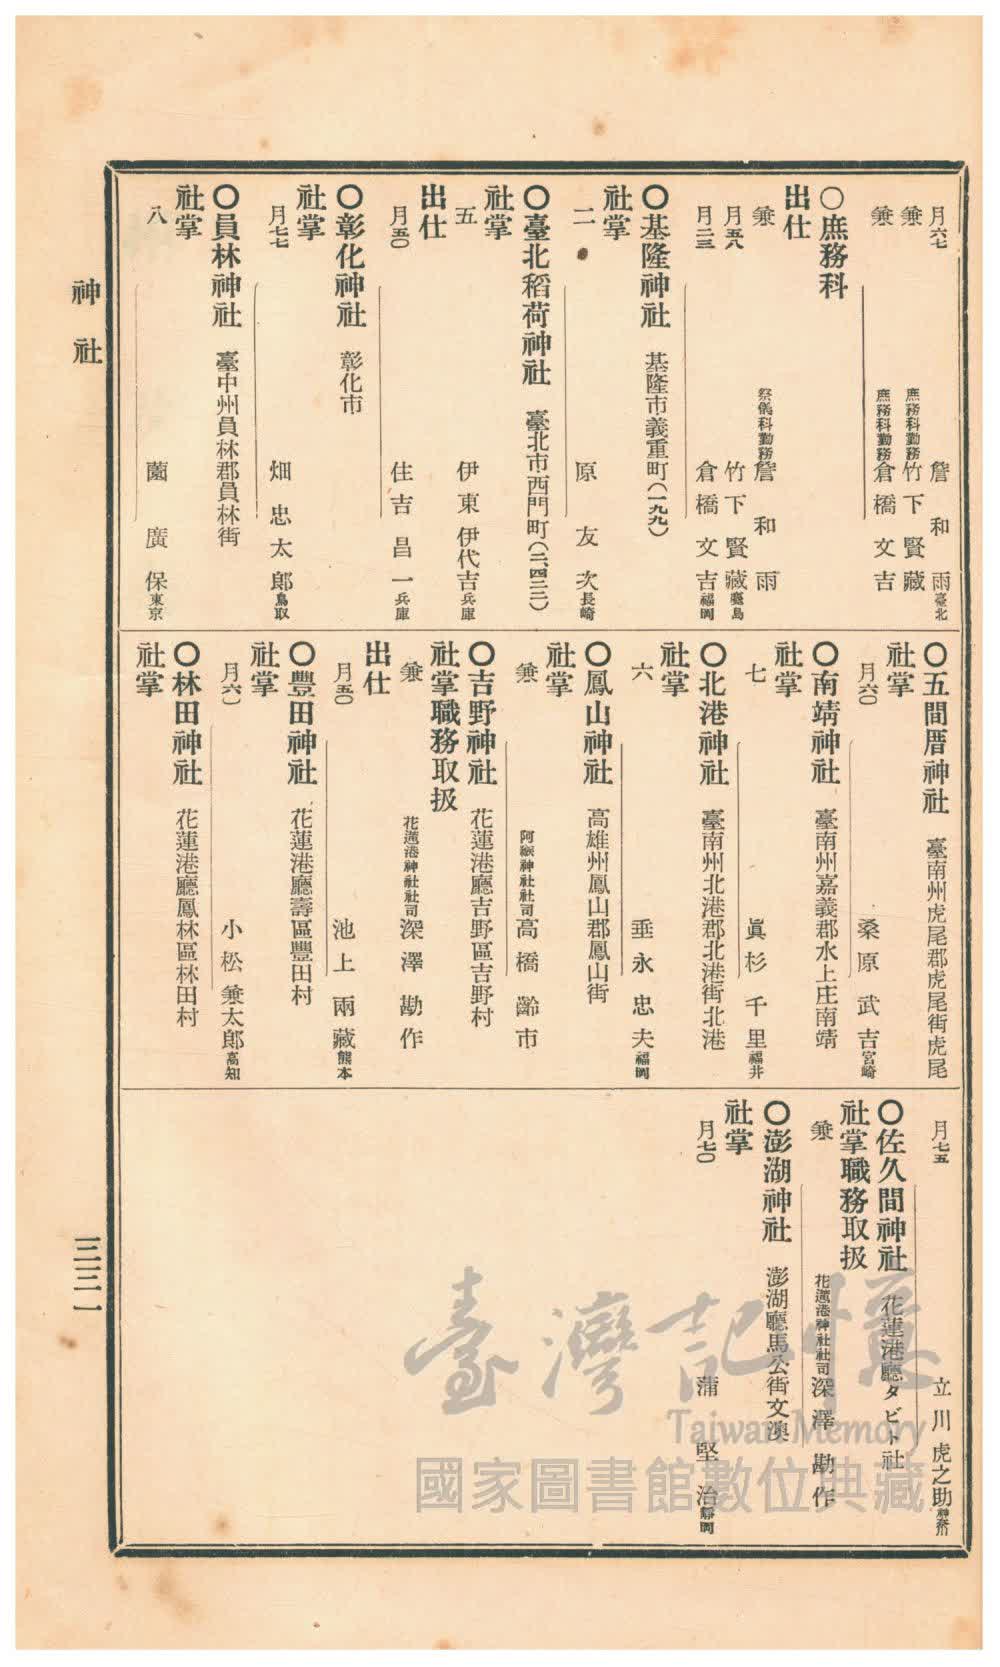 月六七 詹和雨 臺北
兼 庶務科勤務 竹下賢藏
兼 庶務科勤務 倉橋文吉
○庶務科
出仕
兼 祭儀科勤務 詹和雨
月五八 竹下賢藏
月二三 倉橋文吉 福岡
○基隆神社 基隆市義重町(一九九)
社掌
二 原友次 長崎
○臺北稻荷神社 臺北市西門町(二、四三三)
社掌
五 伊東伊代吉 兵庫
出仕
月五〇 住吉昌一 兵庫
○彰化神社 彰化市
社掌
月七七 畑忠太郎 鳥取
○員林神社 臺中州員林郡員林街
社掌
八 薗廣保 東京
○五間厝神社 臺南州虎尾郡虎尾街虎尾
社掌
月六〇 桑原武吉 宮崎
○南靖神社 臺南州嘉義郡水上庄南靖
社掌
七 眞杉千里 福井
○北港神社 臺南州北港郡北港街北港
社掌
六 垂永忠夫 福岡
○鳳山神社 高雄州鳳山郡鳳山街
社掌
兼 阿緱神社社司 高橋齡市
○吉野神社 花蓮港廳吉野區吉野村
社掌職務取扱
兼 花蓮港神社社司 深澤勘作
出仕
月五〇 池上兩藏 熊本
○豐田神社 花蓮港廳壽區豐田村
社掌
月六〇 小松兼太郎 高知
○林田神社 花蓮港廳鳳林區林田村
社掌
月七五 立川虎之助 神奈川
○佐久間神社 花蓮港廳タビト社
社掌職務取扱
兼 花蓮港神社社司 深澤勘作
○澎湖神社 澎湖廳馬公街文澳
社掌
月七〇 蒲堅治 靜岡
神社
三三一
臺灣記憶
Taiwan Memory
國家圖書館數位典藏